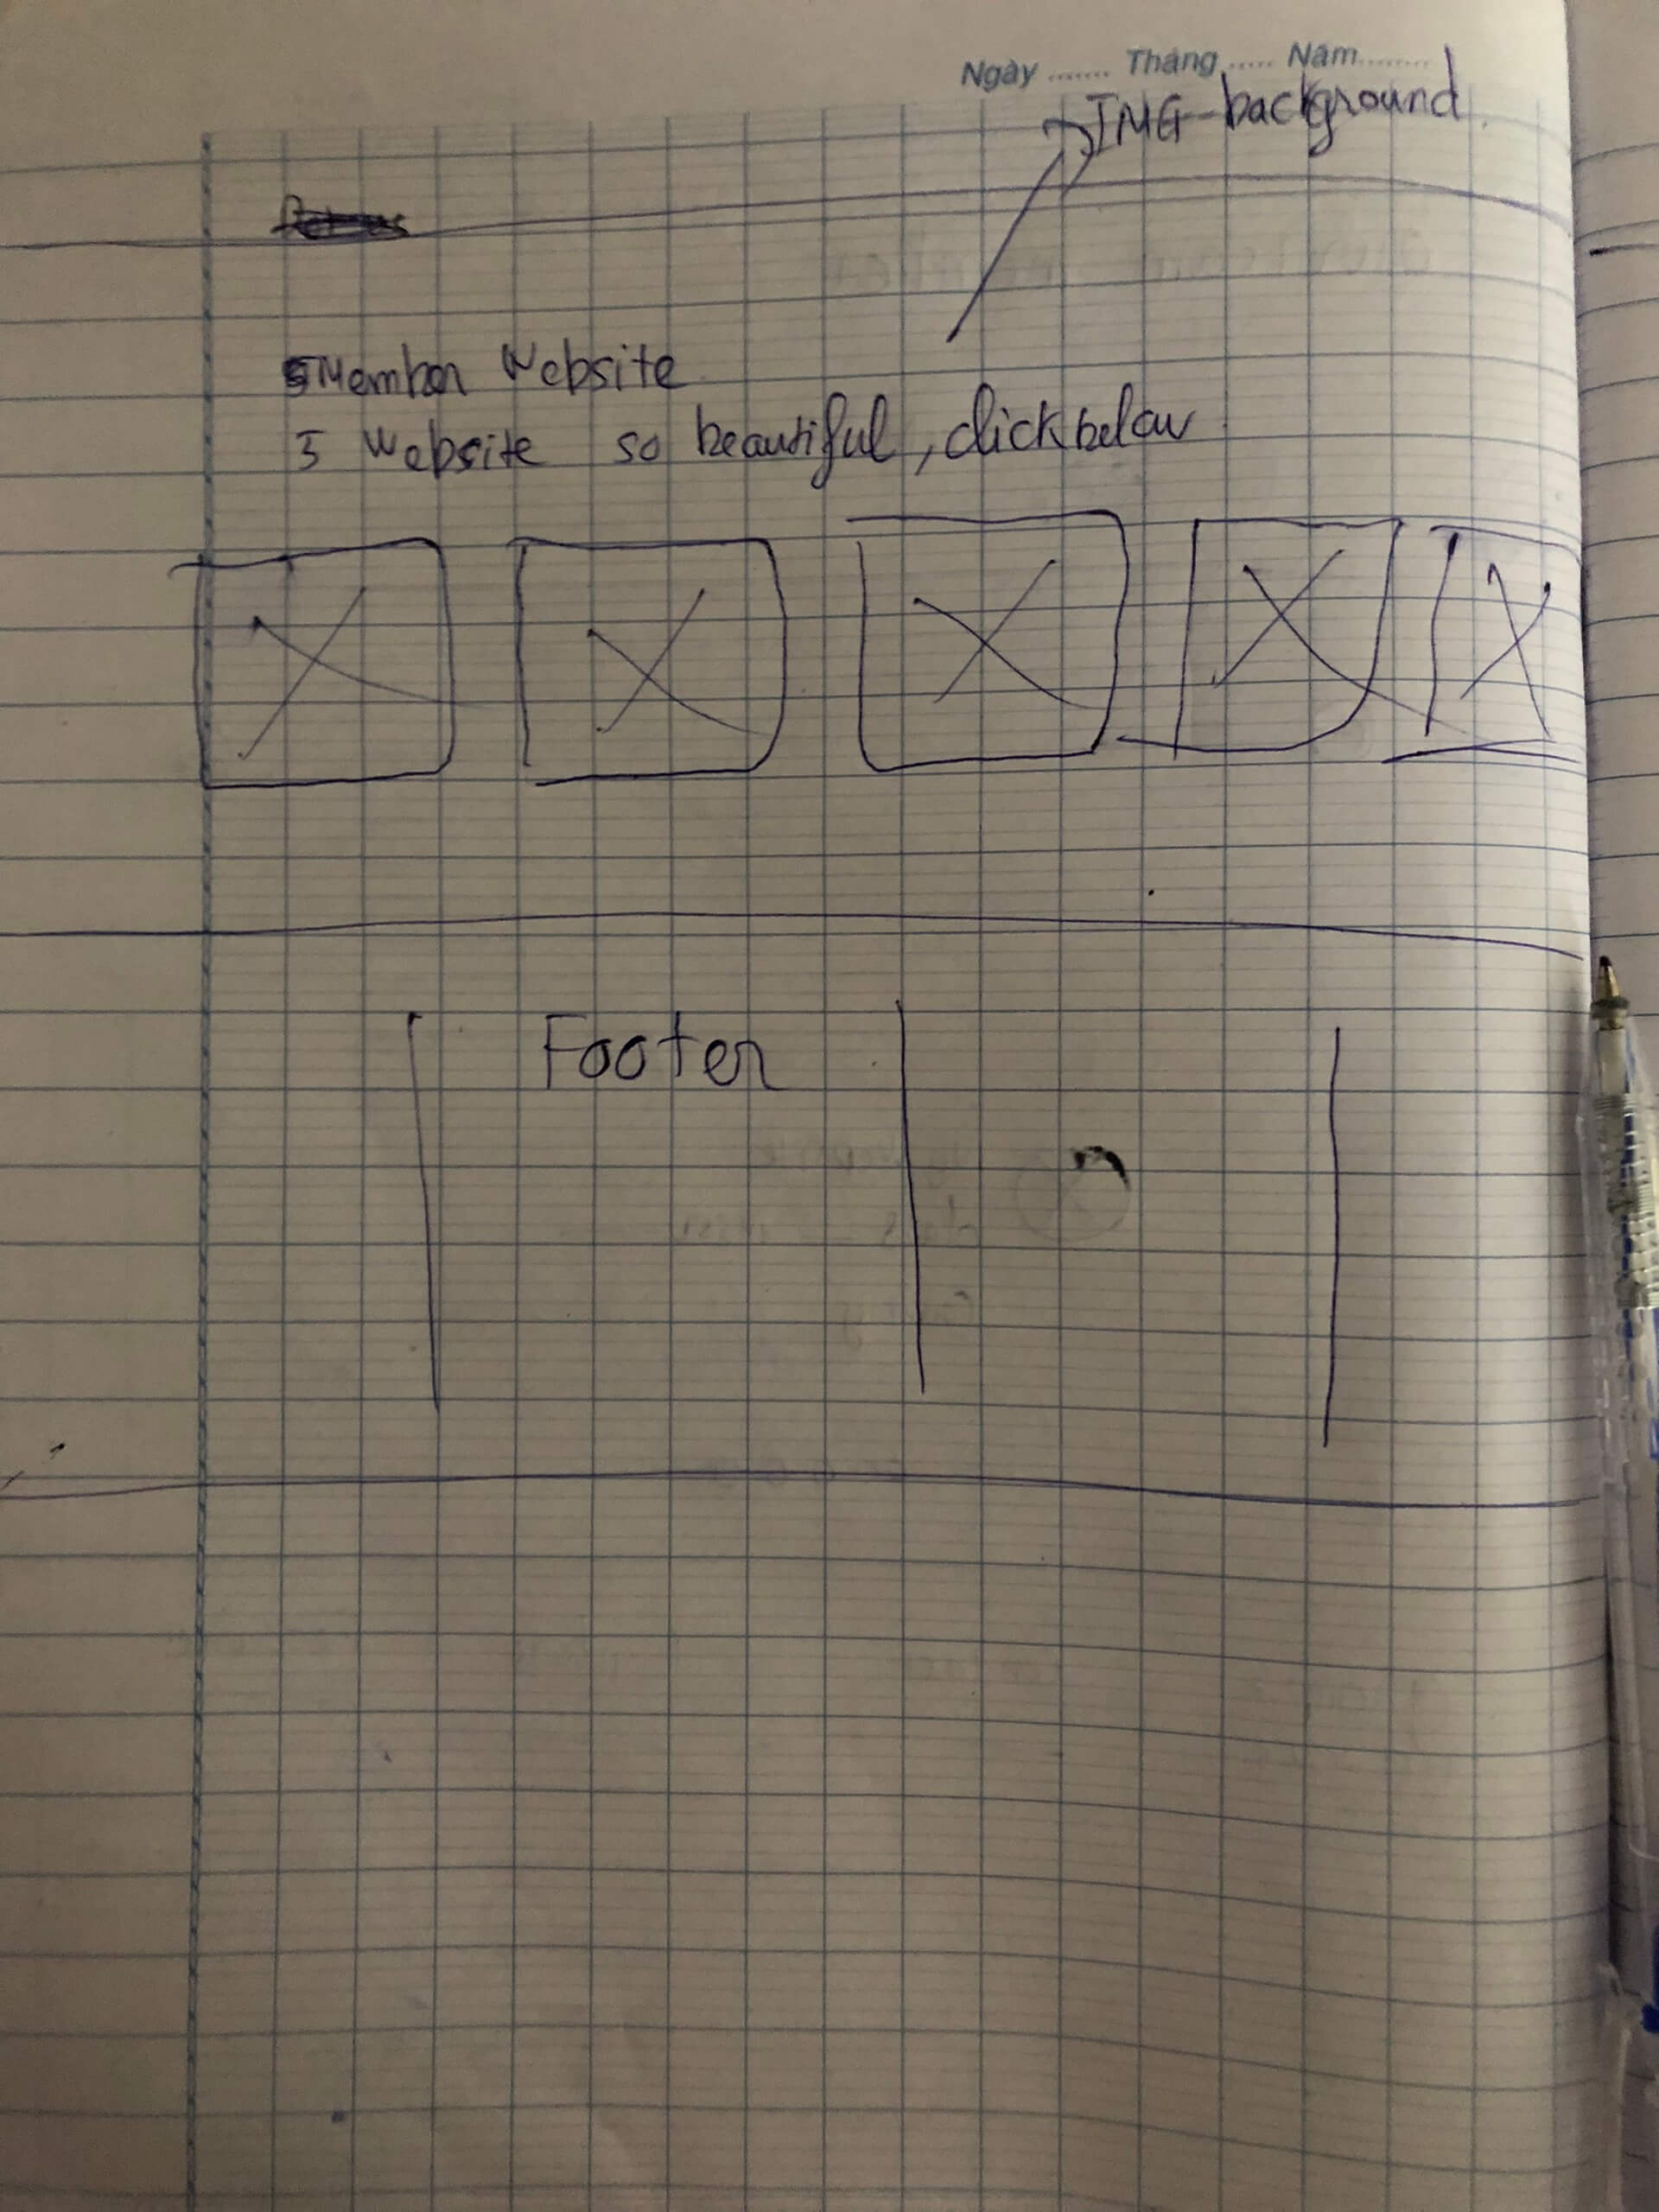 Ngày ....... Tháng ..... Năm.........
IMG-background
5 Member Website
5 Website so beautiful, click below
Footer